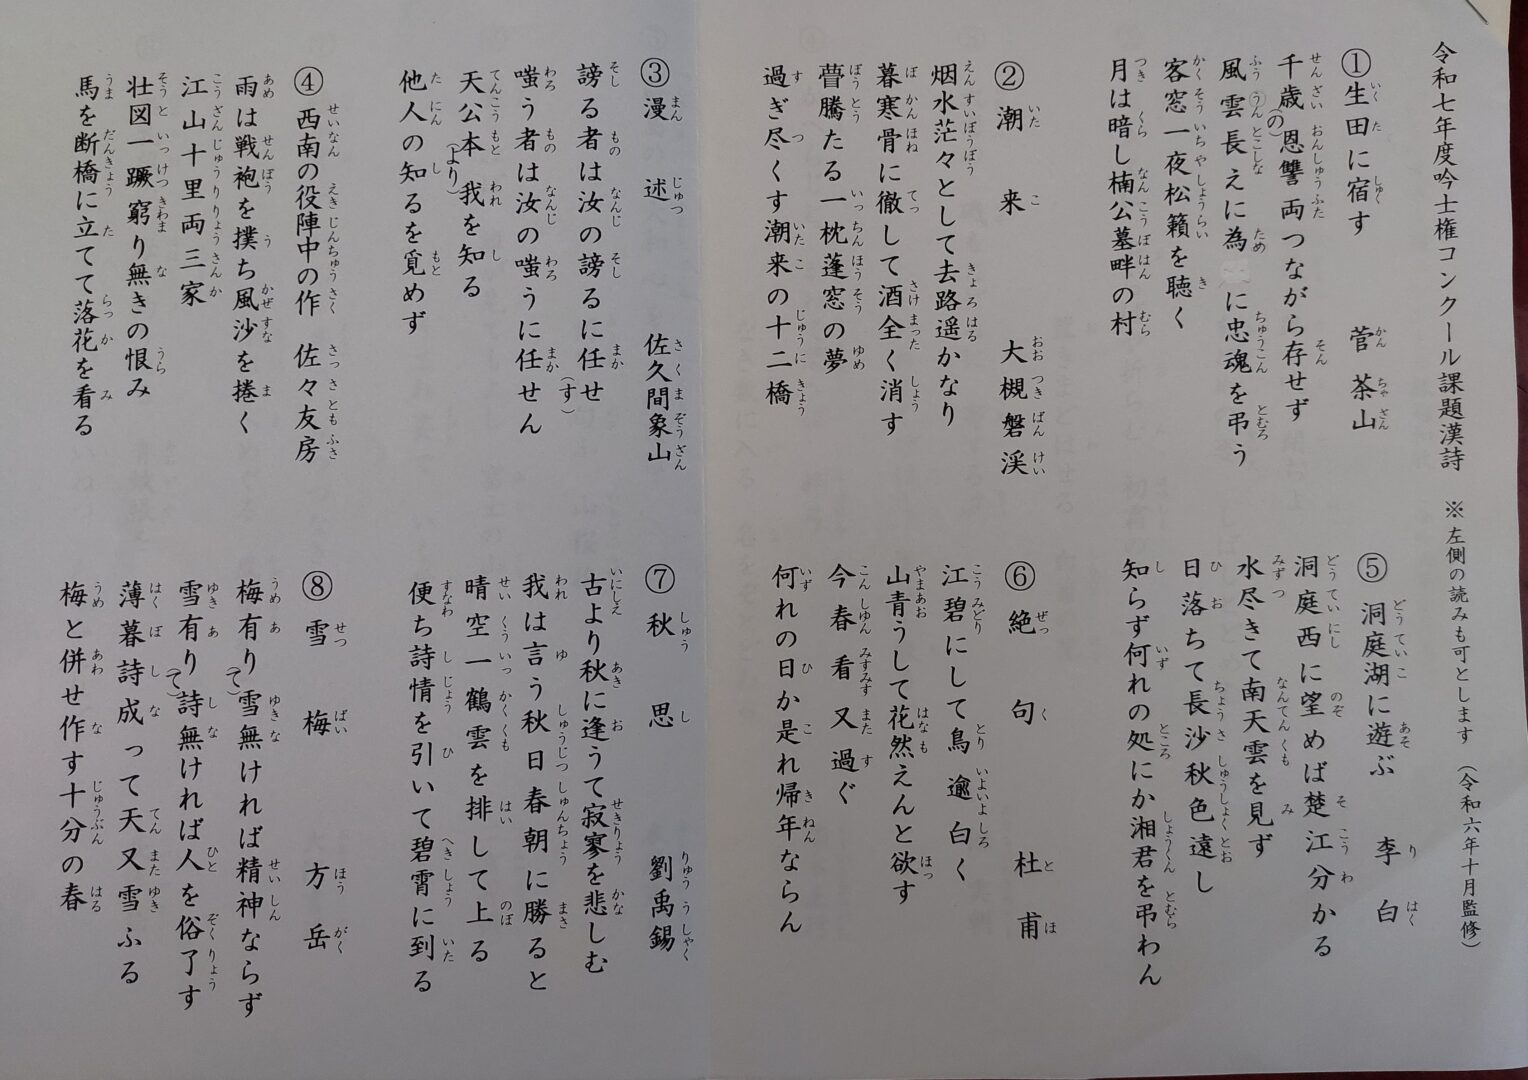 令和七年度吟士権コンクール課題漢詩 ※左側の読みも可とします (令和六年十月監修)
①生田に宿す 菅茶山
千歳恩讐両つながら存せず
(の)
風雲長えに為に忠魂を弔う
客窓一夜松籟を聴く
月は暗し楠公墓畔の村
②潮来 大槻磐渓
烟水茫々として去路遥かなり
暮寒骨に徹して酒全く消す
瞢騰たる一枕蓬窓の夢
過ぎ尽くす潮来の十二橋
③漫述 佐久間象山
謗る者は汝の謗るに任せ
(す)
嗤う者は汝の嗤うに任せん
天公本我を知る
(より)
他人の知るを覓めず
④西南の役陣中の作 佐々友房
雨は戦袍を撲ち風沙を捲く
江山十里両三家
壮図一蹶窮り無きの恨み
馬を断橋に立てて落花を看る
⑤洞庭湖に遊ぶ 李白
洞庭西に望めば楚江分かる
水尽きて南天雲を見ず
日落ちて長沙秋色遠し
知らず何れの処にか湘君を弔わん
⑥絶句 杜甫
江碧にして鳥逾白く
山青うして花然えんと欲す
今春看又過ぐ
何れの日か是れ帰年ならん
⑦秋思 劉禹錫
古より秋に逢うて寂寥を悲しむ
我は言う秋日春朝に勝ると
晴空一鶴雲を排して上る
便ち詩情を引いて碧霄に到る
⑧雪梅 方岳
梅有り雪無ければ精神ならず
(て)
雪有り詩無ければ人を俗了す
(て)
薄暮詩成って天又雪ふる
梅と併せ作す十分の春